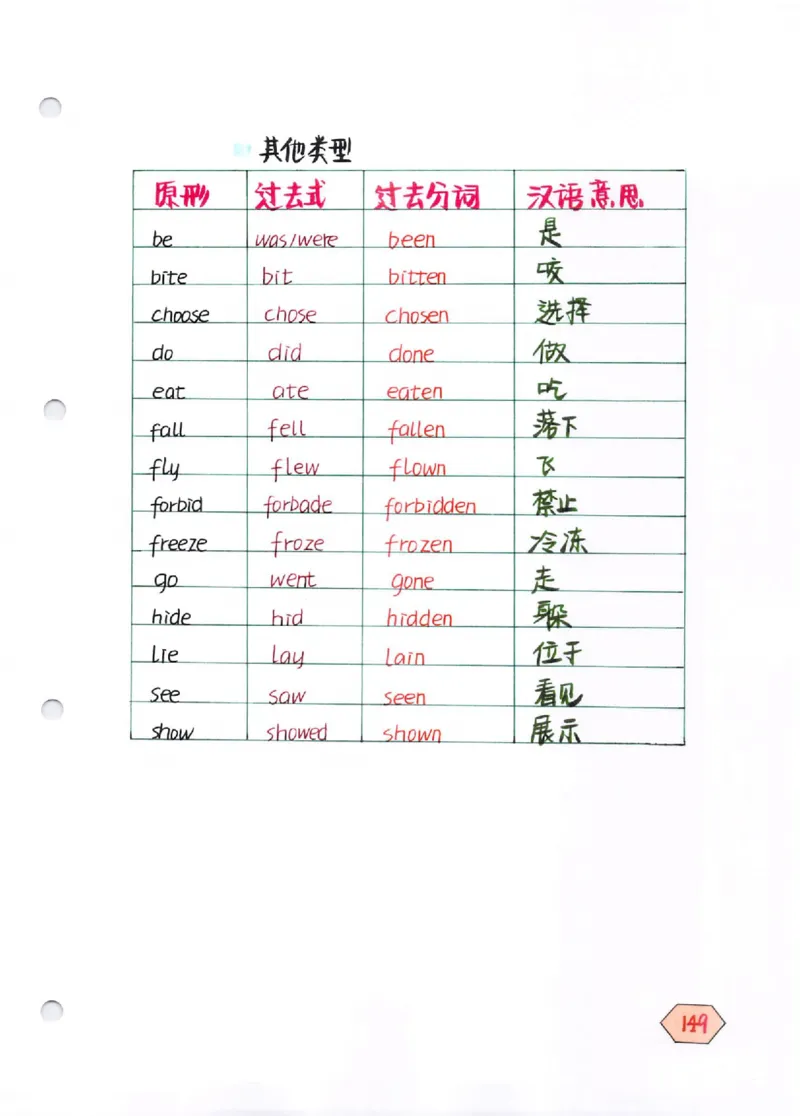 其他类型
原形 过去式 过去分词 汉语意思
be was/were been 是
bite bit bitten 咬
choose chose chosen 选择
do did done 做
eat ate eaten 吃
fall fell fallen 落下
fly flew flown 飞
forbid forbade forbidden 禁止
freeze froze frozen 冷冻
go went gone 走
hide hid hidden 躲
lie lay lain 位于
see saw seen 看见
show showed shown 展示
149